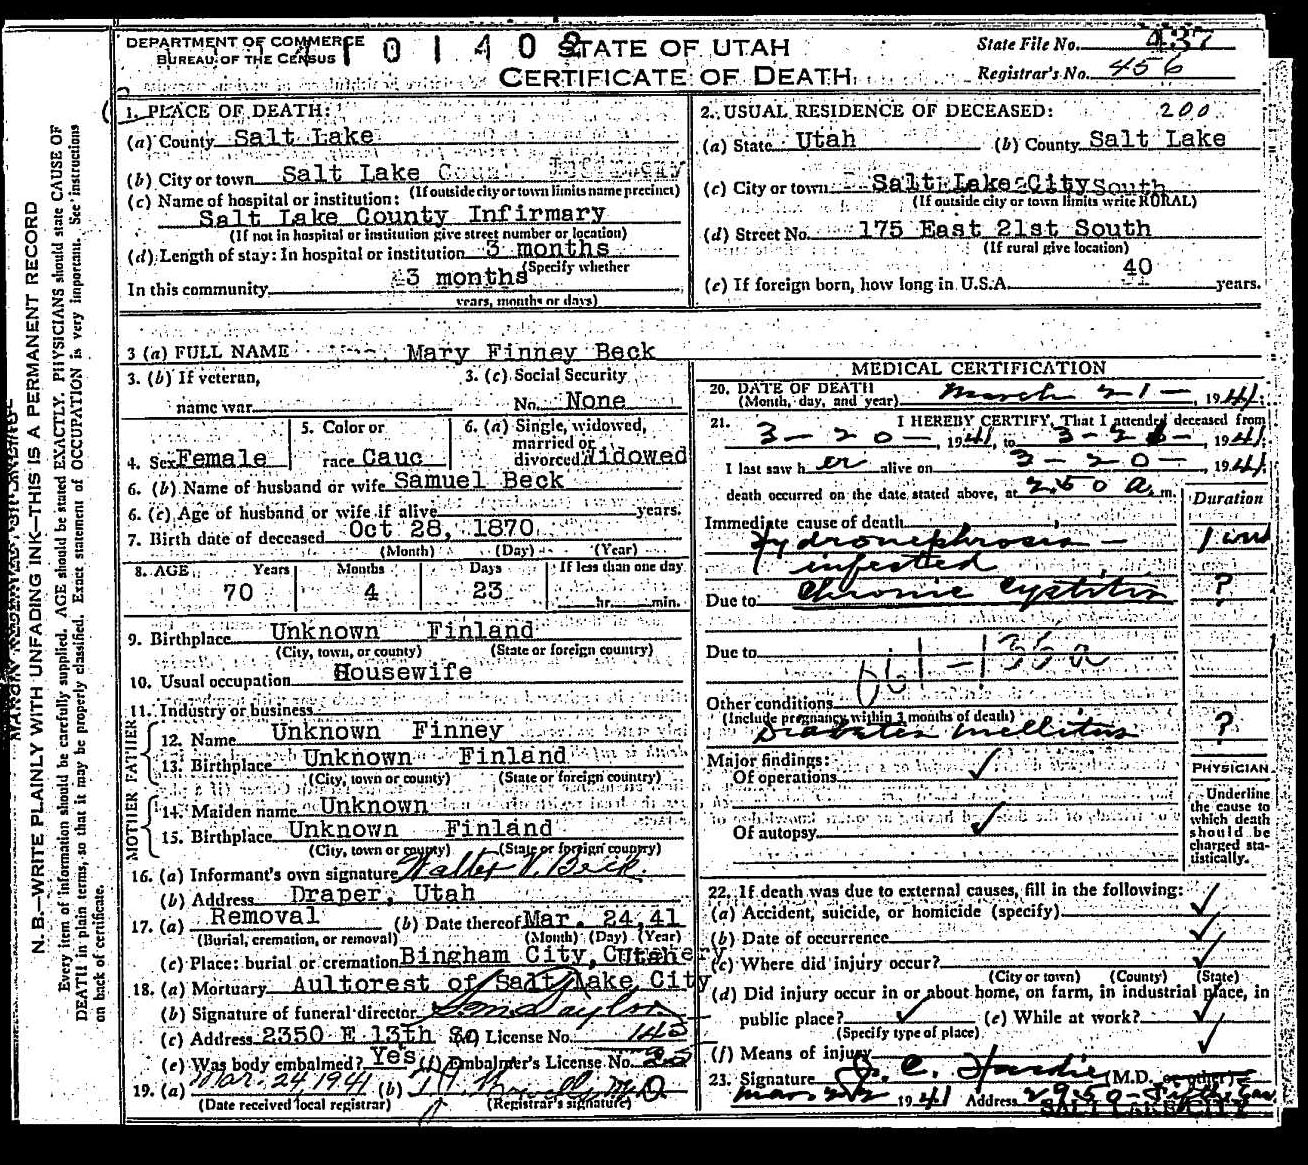 DEPARTMENT OF COMMERCE
BUREAU OF THE CENSUS
STATE OF UTAH
CERTIFICATE OF DEATH
State File No. 437
Registrar's No. 456
1. PLACE OF DEATH:
(a) County Salt Lake
(b) City or town Salt Lake
(If outside city or town limits name precinct)
(c) Name of hospital or institution:
Salt Lake County Infirmary
(If not in hospital or institution give street number or location)
(d) Length of stay: In hospital or institution 3 months
(Specify whether
In this community 3 months
years, months or days)
2. USUAL RESIDENCE OF DECEASED: 200
(a) State Utah (b) County Salt Lake
(c) City or town Salt Lake City South
(If outside city or town limits write RURAL)
(d) Street No. 175 East 21st South
(If rural give location)
(e) If foreign born, how long in U.S.A. 40 years.
3 (a) FULL NAME Mary Finney Beck
3. (b) If veteran,
name war
3. (c) Social Security
No. None
4. Sex Female
5. Color or
race Cauc
6. (a) Single, widowed,
married or
divorced Widowed
6. (b) Name of husband or wife Samuel Beck
6. (c) Age of husband or wife if alive years.
7. Birth date of deceased Oct 28, 1870
(Month) (Day) (Year)
8. AGE Years Months Days If less than one day
70 4 23 hr. min.
9. Birthplace Unknown Finland
(City, town, or county) (State or foreign country)
10. Usual occupation Housewife
11. Industry or business
FATHER
12. Name Unknown Finney
13. Birthplace Unknown Finland
(City, town or county) (State or foreign country)
MOTHER
14. Maiden name Unknown
15. Birthplace Unknown Finland
(City, town or county) (State or foreign country)
16. (a) Informant's own signature Walter V. Beck
(b) Address Draper, Utah
17. (a) Removal (b) Date thereof Mar. 24, 41
(Burial, cremation, or removal) (Month) (Day) (Year)
(c) Place: burial or cremation Bingham City, Utah
18. (a) Mortuary Aultorest of Salt Lake City
(b) Signature of funeral director
(c) Address 2350 E 13th So License No. 145
(e) Was body embalmed? Yes (f) Embalmer's License No.
19. (a) Mar. 24 1941 (b)
(Date received local registrar) (Registrar's signature)
MEDICAL CERTIFICATION
20. DATE OF DEATH
(Month, day, and year) March 21 — , 1941
21. I HEREBY CERTIFY, That I attended deceased from
3 — 20 — , 1941, to 3 — 21 — , 1941
I last saw her alive on 3 — 20 — , 1941
death occurred on the date stated above, at 2:50 A. m.
Duration
Immediate cause of death
Hydronephrosis —
infested
Due to Chronic Cystitis ?
Due to
Other conditions
(Include pregnancy within 3 months of death)
Diabetes mellitus ?
Major findings:
Of operations ✓
Of autopsy ✓
PHYSICIAN
Underline
the cause to
which death
should be
charged sta-
tistically.
22. If death was due to external causes, fill in the following: ✓
(a) Accident, suicide, or homicide (specify)
(b) Date of occurrence ✓
(c) Where did injury occur? ✓
(City or town) (County) (State)
(d) Did injury occur in or about home, on farm, in industrial place, in
public place? ✓ (e) While at work? ✓
(Specify type of place)
(f) Means of injury ✓
23. Signature J. C. Hardie (M.D. or other)
Mar 22 1941 Address
SALT LAKE CITY
N. B.—WRITE PLAINLY WITH UNFADING INK—THIS IS A PERMANENT RECORD
Every item of information should be carefully supplied. AGE should be stated EXACTLY. PHYSICIANS should state CAUSE OF
DEATH in plain terms, so that it may be properly classified. Exact statement of OCCUPATION is very important. See instructions
on back of certificate.